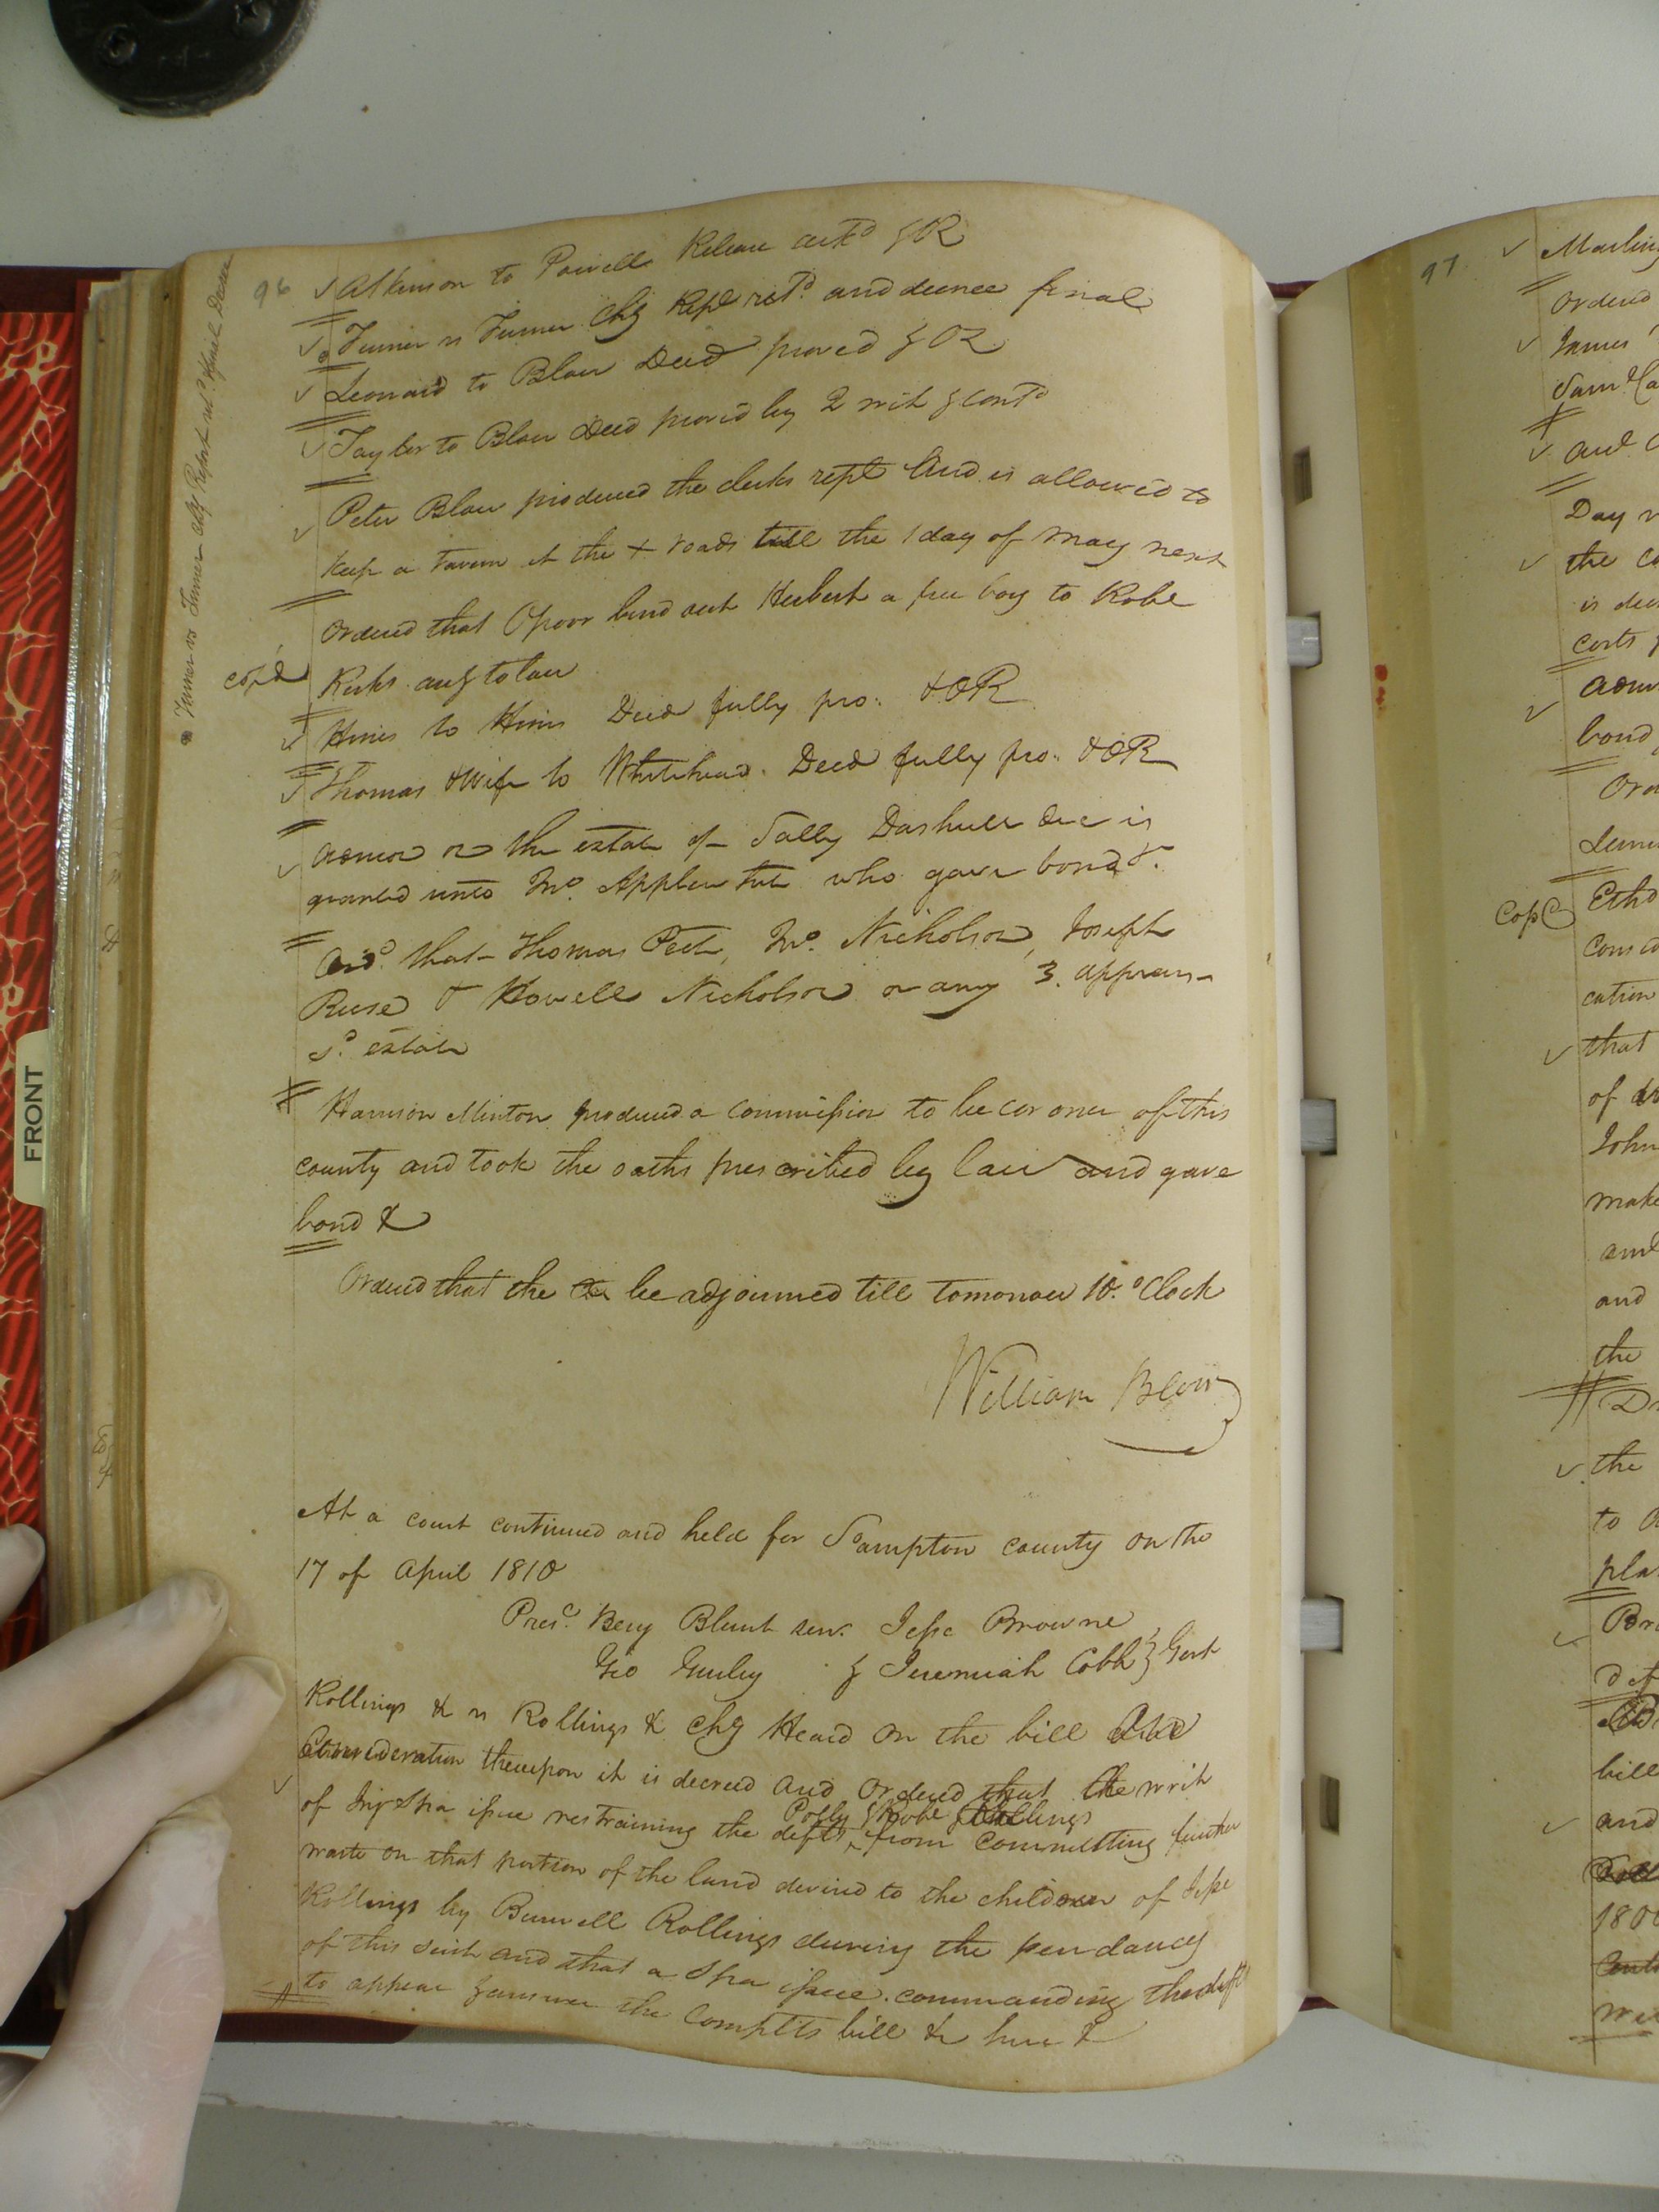 96
Atkinson to Powell Release ackd & OR
Turner vs Turner Chy Rept retd and decree final
Leonard to Blow Deed proved & OR
Taylor to Blow Deed proved by 2 wit & contd
Peter Blow produced the clerks rept And is allowed to
keep a tavern at the + roads till the 1 day of may next
Ordered that Opoor bind out Herbert a free boy to Robt
cop'd
Kirks. accg to law
Hines to Hines Deed fully pro: & OR
Thomas & wife to Whitehead. Deed fully pro: & OR
admon on the estate of Sally Dashiell dec is
granted unto Jno. Applewhite who gave bond &.
Ord. that Thomas Pete, Jno. Nicholson, Joseph
Reese & Howell Nicholson or any 3. appraise
sd. estate
Harrison Minton produced a commission to be coroner of this
county and took the oaths prescribed by law and gave
bond &
Ordered that the Ct be adjourned till tomorrow 10. oClock
William Blow
At a court continued and held for Sampton county on the
17 of April 1810
Presd. Benj Blunt senr. Jesse Browne
Geo Gurley & Jeremiah Cobb } Gent
Rollings & vs Rollings & Chy Heard on the bill And
Consideration thereupon it is decreed and Ordered that the writ
Polly & Robt Rollings
of Inj & Spa issue restraining the defts ^ from committing further
waste on that portion of the land devised to the children of Jesse
Rollings by Burwell Rollings during the pendancy
of this suit and that a Spa issue. commanding the defts
to appear & answer the Complts bill &
Turner vs Turner Chy Report retd. & final Decree
FRONT
97
Ordered
James
Day
the
is
costs
admr
bond
Copd
that
of
John
make
and
and
the
the
to
bill
and